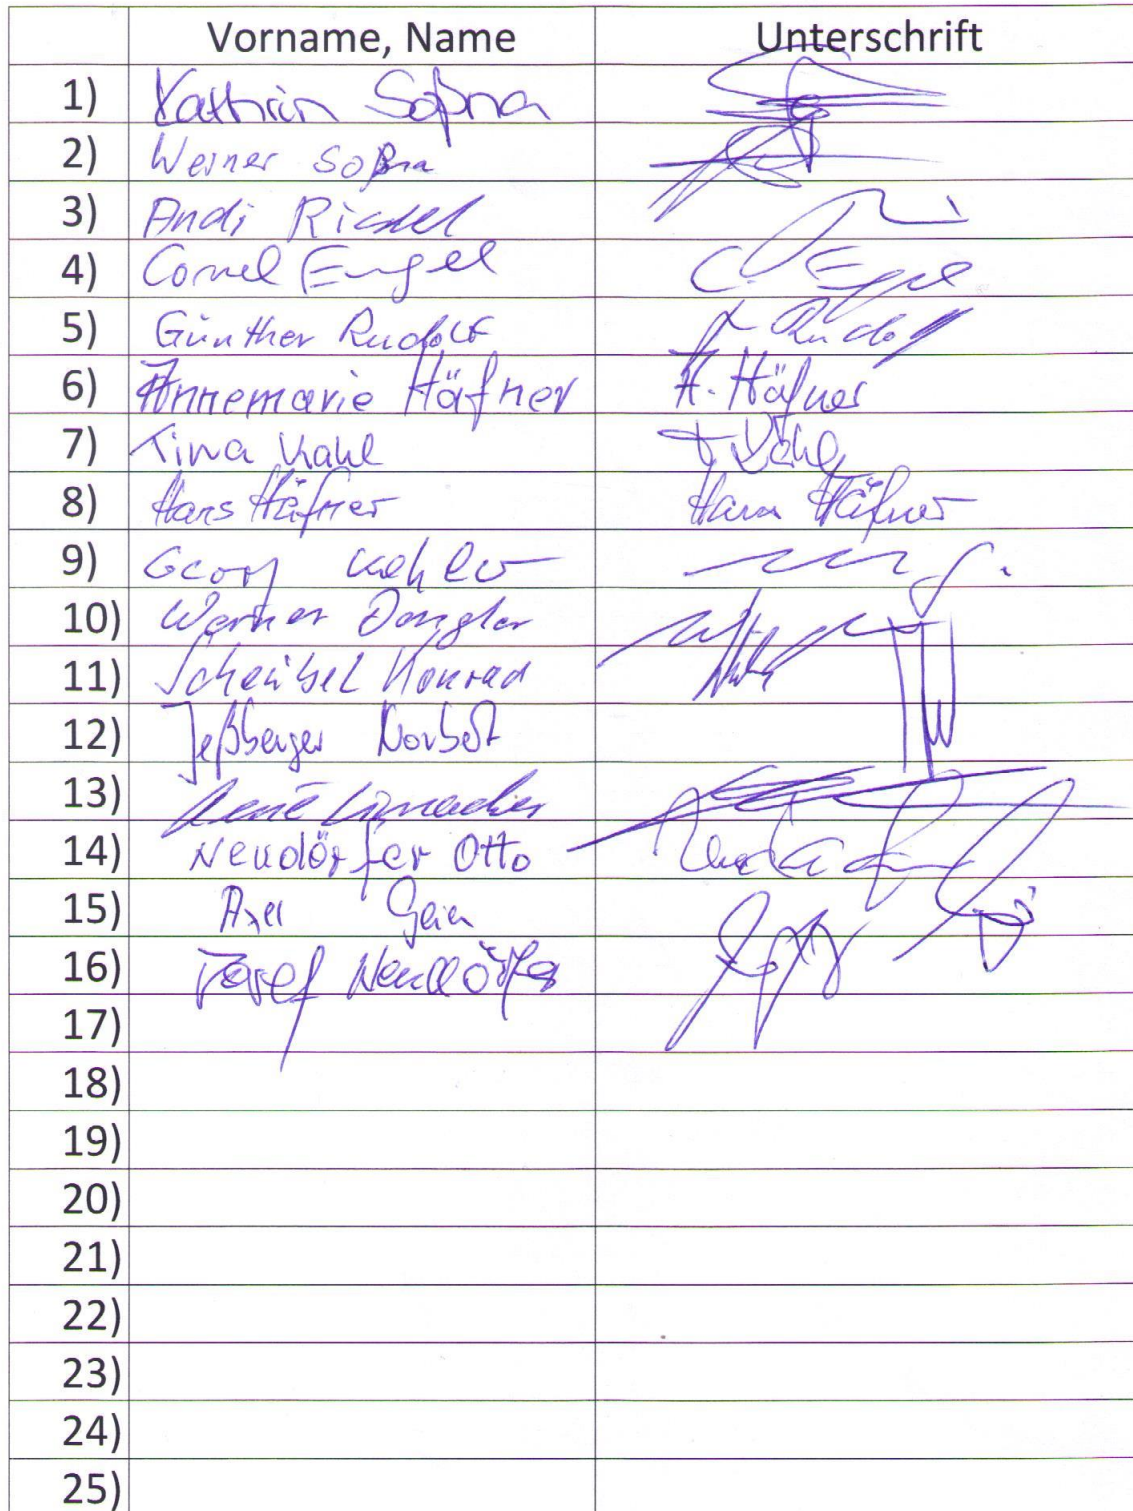 Vorname, Name Unterschrift
1) Kathrin Soßna
2) Werner Soßna
3) Andi Riedel
4) Cornel Engel C. Engel
5) Günther Rudolf Rudolf
6) Annemarie Häfner A. Häfner
7) Tina Kahl T Kahl
8) Hans Häfner Hans Häfner
9) Georg
10) Werner Dengler
11) Scheubel Konrad
12) Jeßberger Norbert
13) René
14) Neudörfer Otto
15) Axel Geier
16) Josef Neudörfer
17)
18)
19)
20)
21)
22)
23)
24)
25)